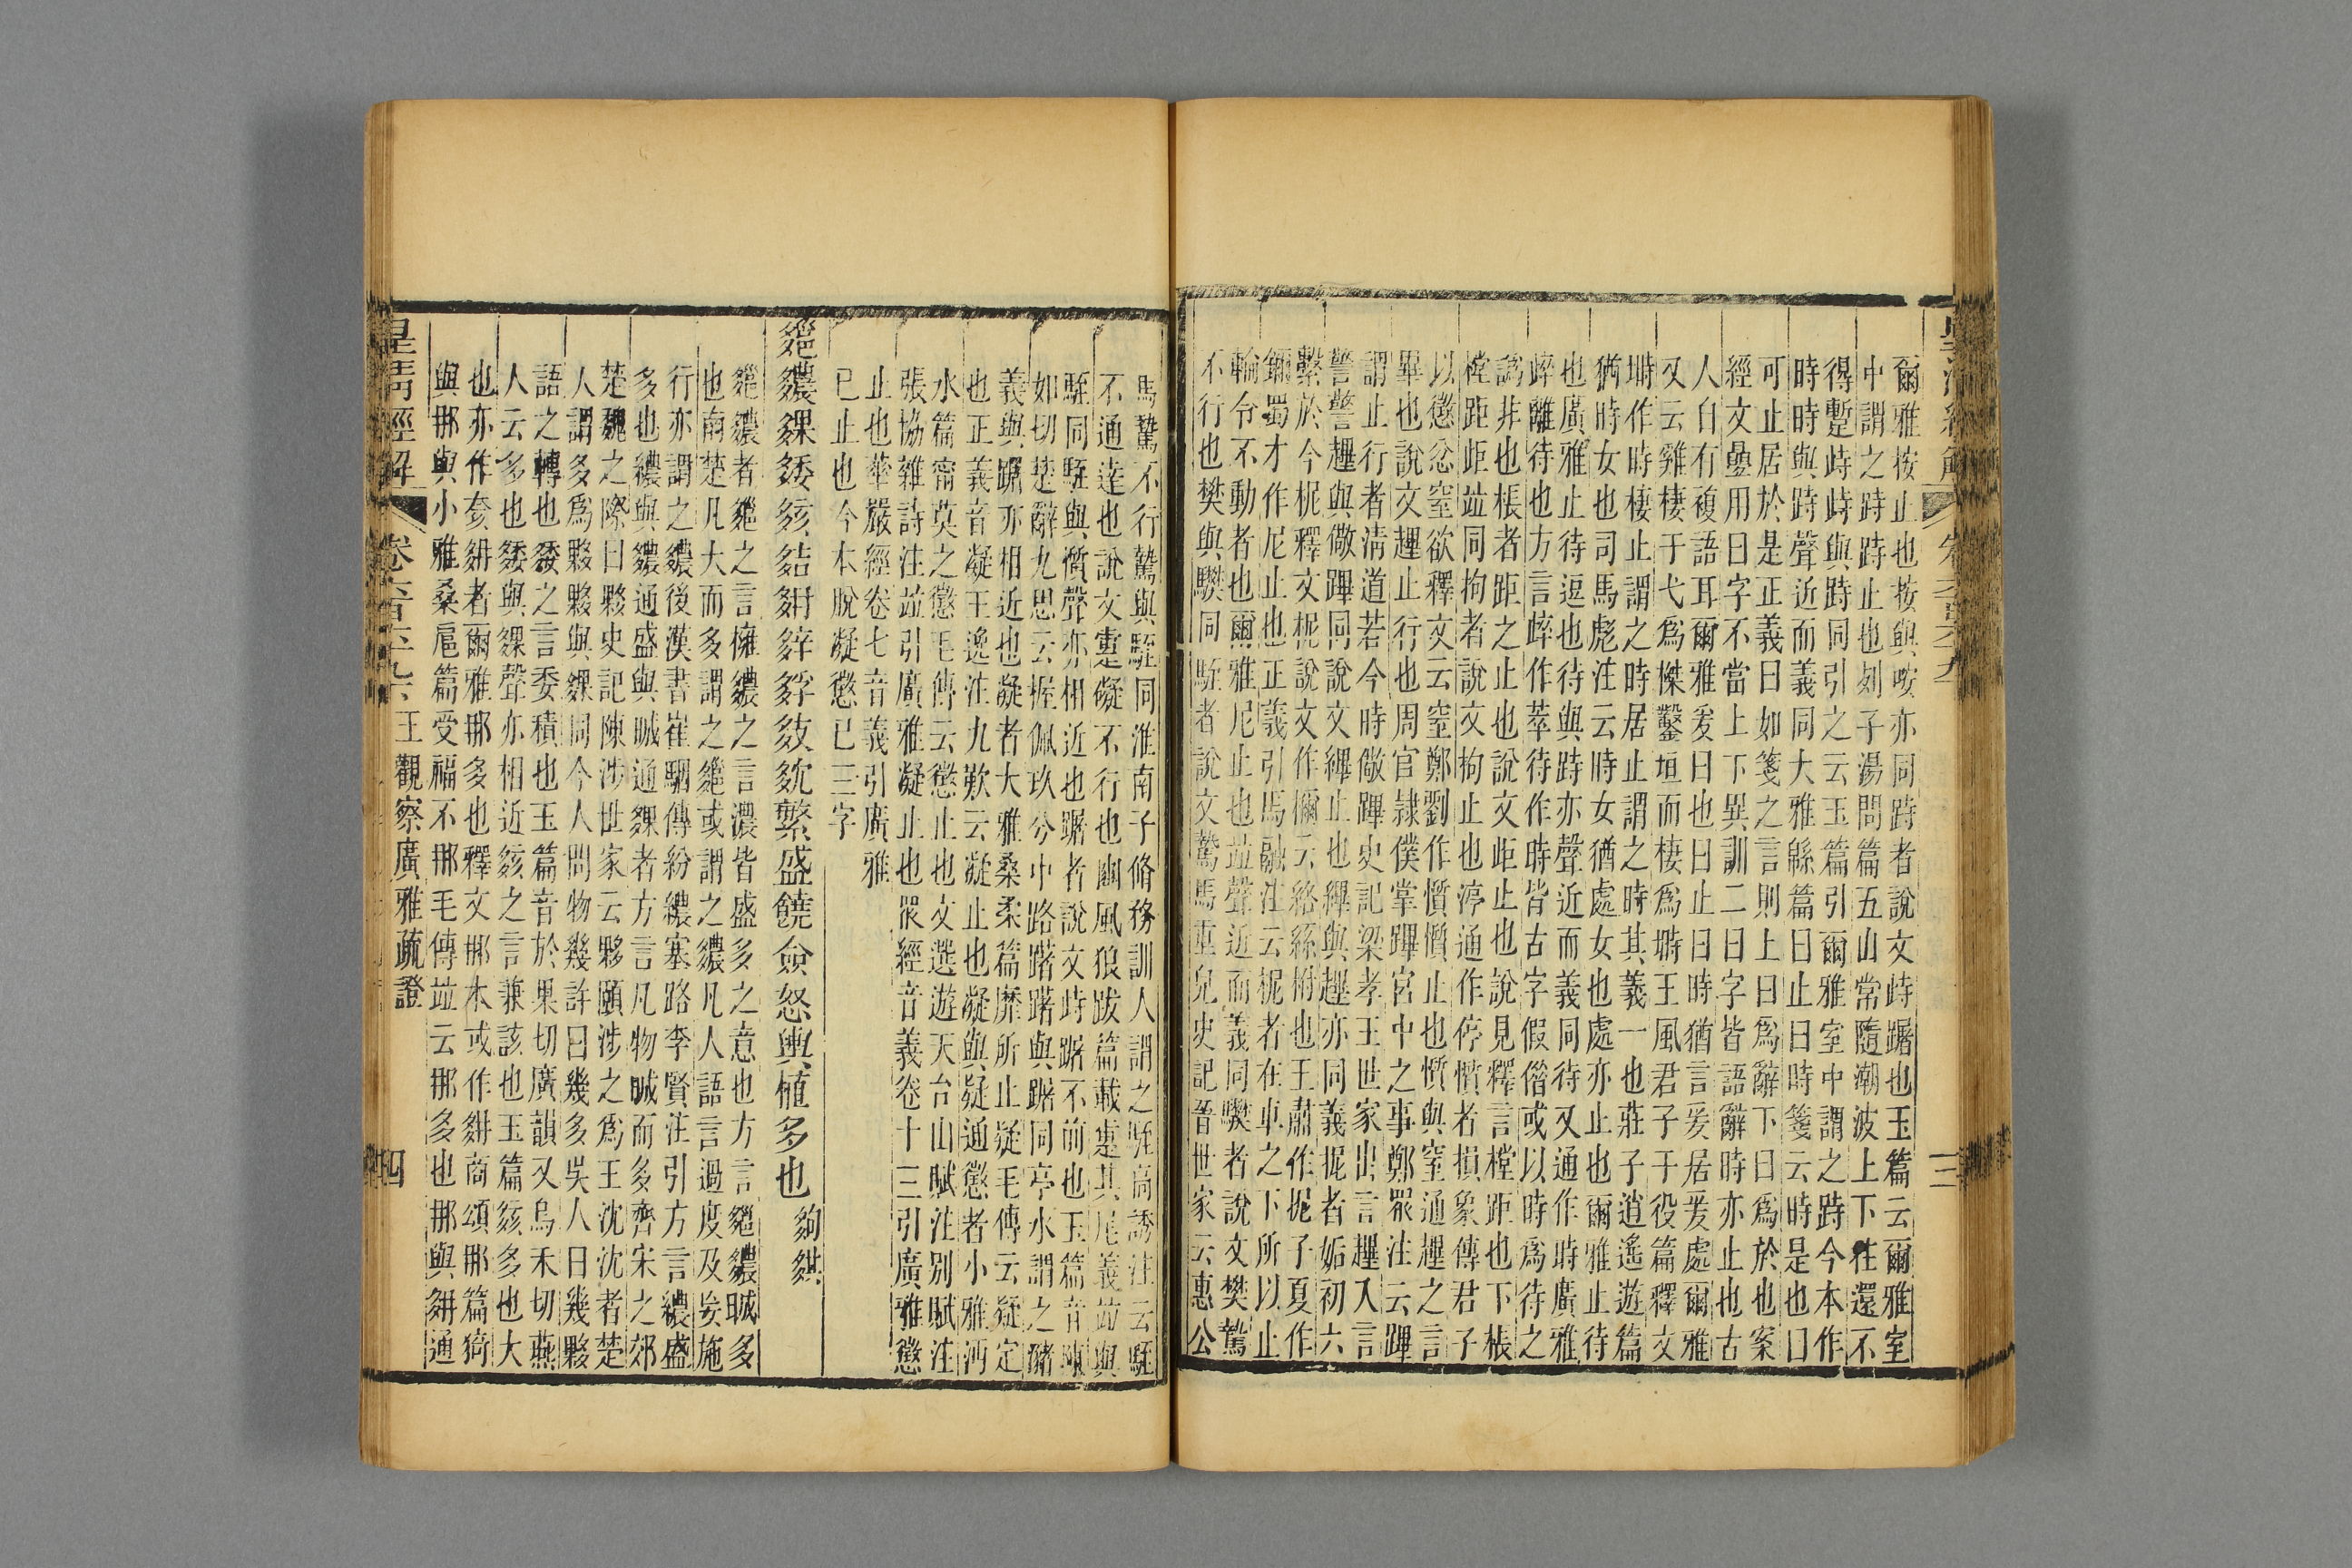 爾雅按止也按與咹亦同跱者說文峙踞也玉篇云爾雅室
中謂之跱跱止也列子湯問篇五山常隨潮波上下往還不
得蹔峙跱與跱同引之云玉篇引爾雅室中謂之跱今本作
時時與跱聲近而義同大雅緜篇曰止曰時箋云時是也曰
可止居於是正義曰如箋之言則上曰爲辭下曰爲於也案
經文曡用曰字不當上下異訓二曰字皆語辭時亦止也古
人自有複語耳爾雅爰曰也曰止曰時猶言爰居爰處爾雅
又云雞棲于弋爲榤鑿垣而棲爲塒王風君子于役篇釋文
塒作時棲止謂之時居止謂之時其義一也莊子逍遙遊篇
猶時女也司馬彪注云時女猶處女也處亦止也爾雅止待
也廣雅止待逗也待與跱亦聲近而義同待又通作時廣雅
崪離待也方言崪作萃待作時皆古字假借或以時爲待之
譌非也棖者距之止也說文歫止也說見釋言樘距也下棖
樘距歫竝同拘者說文拘止也停通作停懫者損象傳君子
以懲忿窒欲釋文云窒鄭劉作懫懫止也懫與窒通趩之言
畢也說文趩止行也周官隷僕掌蹕宮中之事鄭眾注云蹕
謂止行者淸道若今時儆蹕史記梁孝王世家出言趩入言
警警趩與儆蹕同說文縪止也縪與趩亦同義抳者姤初六
繫於今柅釋文柅說文作檷云絡絲柎也王肅作抳子夏作
鑈蜀才作尼止也正義引馬融注云柅者在車之下所以止
輪令不動者也爾雅尼止也竝聲近而義同樊者說文樊騺
不行也樊與驋同駤者說文騺馬重皃史記晉世家云惠公
馬騺不行騺與駤同淮南子脩務訓人謂之駤高誘注云駤
不通達也說文疐礙不行也豳風狼跋篇載疐其尾義竝與
駤同駤與懫聲亦相近也踞者說文峙踞不前也玉篇音陳
如切楚辭九思云握佩玖兮中路躇躇與踞同亭水謂之豬
義與踞亦相近也凝者大雅桑柔篇靡所止疑毛傳云疑定
也正義音凝王逸注九歎云凝止也凝與疑通懲者小雅沔
水篇甯莫之懲毛傳云懲止也文選遊天台山賦注別賦注
張協雜詩注竝引廣雅凝止也眾經音義卷十三引廣雅懲
止也華嚴經卷七音義引廣雅
已止也今本脫凝懲已三字
䋽繷䴹㛂㚊結𡖈綷㚋㩽㚇繁盛饒僉怒輿植多也
䋽繷者䋽之言擁繷之言濃皆盛多之意也方言䋽繷晠多
也南楚凡大而多謂之䋽或謂之繷凡人語言過度及妄施
行亦謂之繷後漢書崔駰傳紛繷塞路李賢注引方言繷盛
多也繷與繷通盛與晠通䴹者方言凡物晠而多齊宋之郊
楚魏之際曰夥史記陳涉世家云夥頤涉之爲王沈沈者楚
人謂多爲夥夥與䴹同今人問物幾許曰幾多吳人曰幾夥
語之轉也㛂之言委積也玉篇音於果切廣韻又烏禾切燕
人云多也㛂與䴹聲亦相近㚊之言兼該也玉篇㚊多也大
也亦作奓𡖈者爾雅那多也釋文那本或作𡖈商頌那篇猗
與那與小雅桑扈篇受福不那毛傳竝云那多也那與𡖈通
皇淸經解
王觀察廣雅疏證
三
四